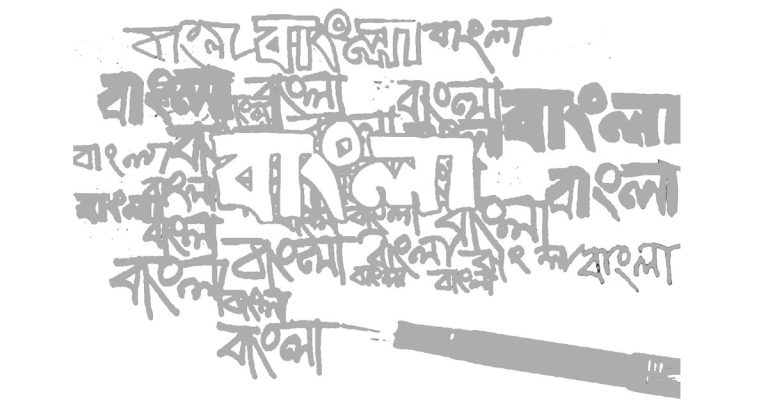 বাংলা বাংলা বাংলা
বাংলা বাংলা বাংলা বাংলা
বাংলা
বাংলা বাংলা বাংলা
বাংলা
বাংলা বাংলা বাংলা
বাংলা বাংলা
বাংলা বাংলা বাংলা বাংলা
বাংলা বাংলা বাংলা
বাংলা
বাংলা